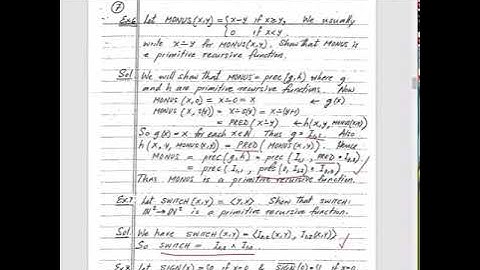 ⑦
Ex.6 Let MONUS(x,y) = {x-y if x≥y, We usually
{0 if x<y.
write x∸y for MONUS(x,y). Show that MONUS is
a primitive recursive function.
Sol. We will show that MONUS = prec(g,h) where g
and h are primitive recursive functions. Now
MONUS (x,0) = x∸0 = x ← g(x)
MONUS (x, s(y)) = x∸s(y) = x∸(y+1)
= PRED(x∸y) ← h(x,y, MONUS(x,y))
So g(x) = x for each x∈N. Thus g = I₁,₁. Also
h(x, y, MONUS(x,y)) = PRED(MONUS(x,y)). Hence
MONUS = prec(g,h) = prec(I₁,₁, PRED∘I₃,₃)
= prec(I₁,₁, prec(0, I₂,₁)∘I₃,₃)
Thus MONUS is a primitive recursive function.
Ex.7 Let SWITCH(x,y) = ⟨y,x⟩. Show that SWITCH:
N²→N² is a primitive recursive function.
Sol. We have SWITCH(x,y) = ⟨I₂,₂(x,y), I₂,₁(x,y)⟩
So SWITCH = I₂,₂ × I₂,₁.
Ex.8 Let SIGN(x) = {0 if x=0 &